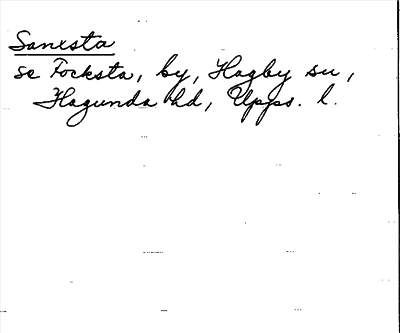 Sanxsta
se Focksta, by, Hagby sn,
Hagunda hd, Upps. l.